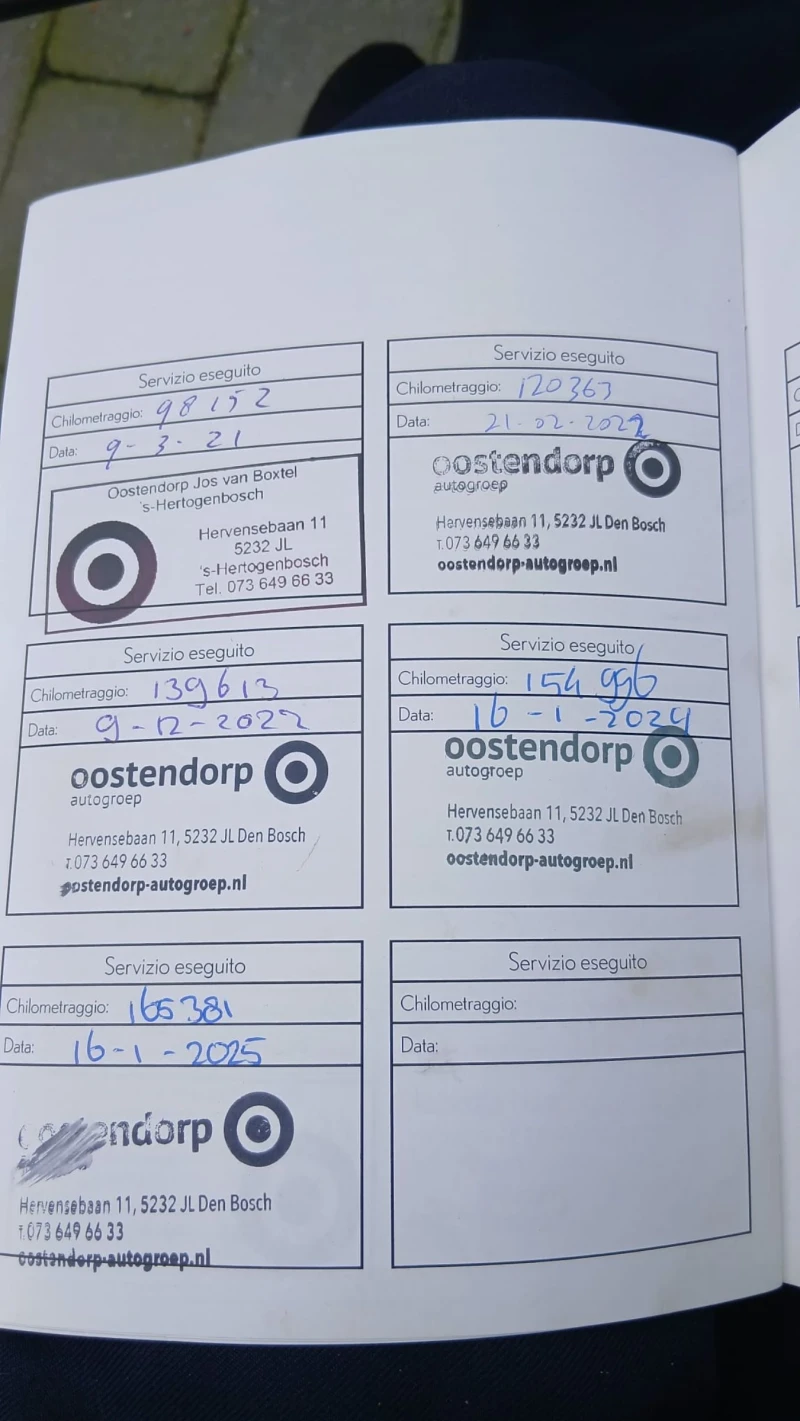 Servizio eseguito
Chilometraggio: 98152
Data: 9-3-21
Oostendorp Jos van Boxtel
's-Hertogenbosch
Hervensebaan 11
5232 JL
's-Hertogenbosch
Tel. 073 649 66 33
Servizio eseguito
Chilometraggio: 120363
Data: 21-02-2022
oostendorp
autogroep
Hervensebaan 11, 5232 JL Den Bosch
T.073 649 66 33
oostendorp-autogroep.nl
Servizio eseguito
Chilometraggio: 139613
Data: 9-12-2022
oostendorp
autogroep
Hervensebaan 11, 5232 JL Den Bosch
T.073 649 66 33
oostendorp-autogroep.nl
Servizio eseguito
Chilometraggio: 154 996
Data: 16-1-2024
oostendorp
autogroep
Hervensebaan 11, 5232 JL Den Bosch
T.073 649 66 33
oostendorp-autogroep.nl
Servizio eseguito
Chilometraggio: 165381
Data: 16-1-2025
oostendorp
Hervensebaan 11, 5232 JL Den Bosch
T.073 649 66 33
oostendorp-autogroep.nl
Servizio eseguito
Chilometraggio:
Data: